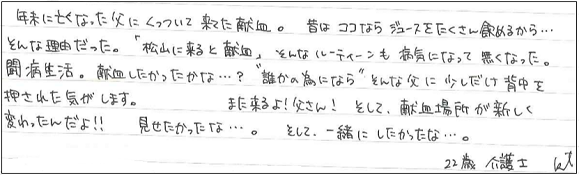 年末に亡くなった父にくっついて来てた献血。昔はココならジュースをたくさん飲めるから…
そんな理由だった。「松山に来ると献血」そんなルーティーンも病気になって無くなった。
闘病生活。献血したかったかな…？"誰かの為になら"そんな父に少しだけ背中を
押された気がします。 また来るよ！父さん！ そして、献血場所が新しく
変わったんだよ!! 見せたかったな…。 そして、一緒にしたかったな…。
22歳 介護士